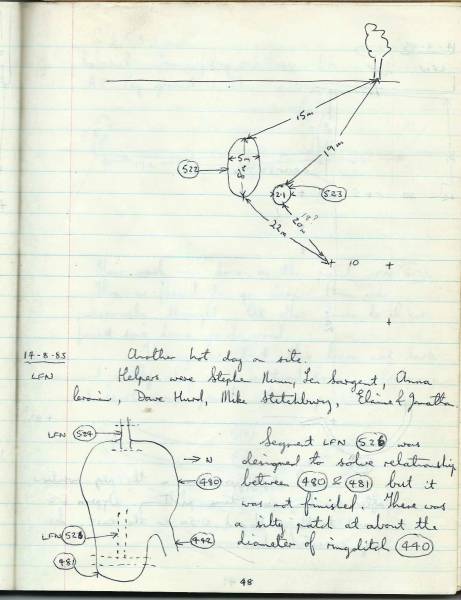 15m
19m
5m
522
2.1
523
18?
20m
22m
10
14-8-85
Another hot day on site.
LFN
Helpers were Stephen Nunn, Len Sargent, Anna
Dave Hurd, Mike Stitchbury, Elaine & Jonathan
LFN 524
Segment LFN 526 was
N
designed to solve relationship
480
between 480 & 481 but it
was not finished. There was
LFN 526
a silty patch at about the
442
diameter of ringditch 440
481
48